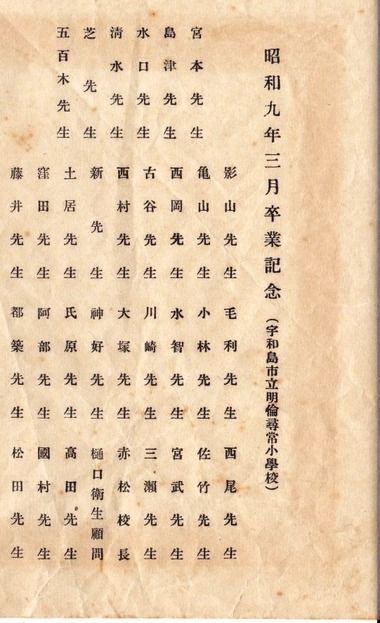 昭和九年三月卒業記念(宇和島市立明倫尋常小學校)
影山先生 毛利先生 西尾先生
宮本先生 亀山先生 小林先生 佐竹先生
島津先生 西岡先生 水智先生 宮武先生
水口先生 古谷先生 川崎先生 三瀬先生
清水先生 西村先生 大塚先生 赤松校長
芝先生 新先生 神好先生 樋口衛生顧問
五百木先生 土居先生 氏原先生 高田先生
窪田先生 阿部先生 國村先生
藤井先生 都築先生 松田先生